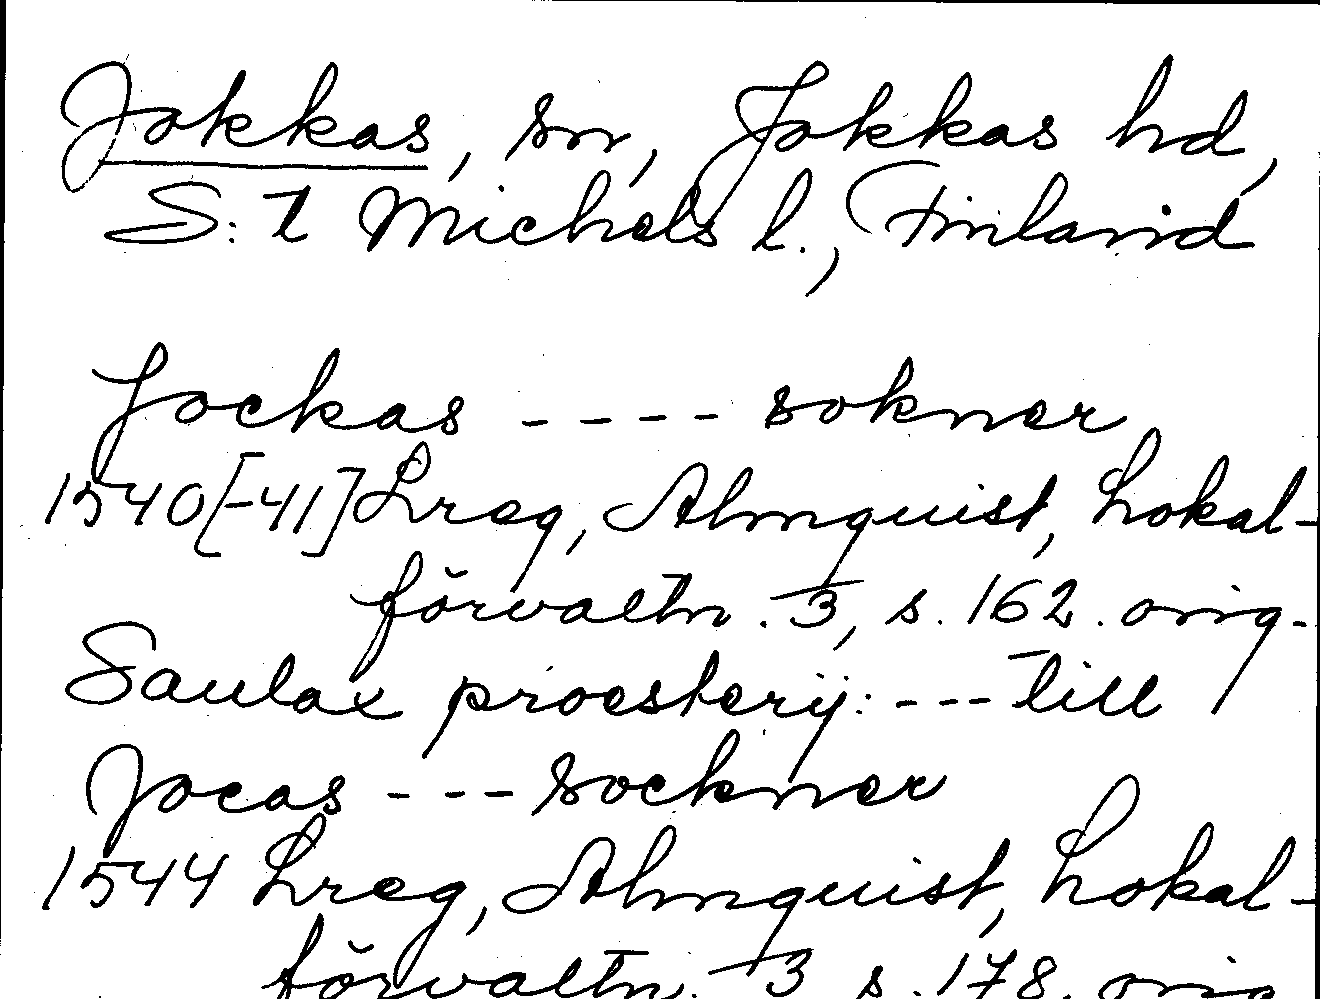 Jokkas, sn, Jokkas hd,
S:t Michels l., Finland
Jockas ---- sokner
1540[-41] Lreg, Almquist, Lokal-
förvaltn. 3, s. 162. orig.
Saulax proesterij: --- till
Jocas --- sockner
1544 Lreg, Almquist, Lokal-
förvaltn. 3 s. 178. orig